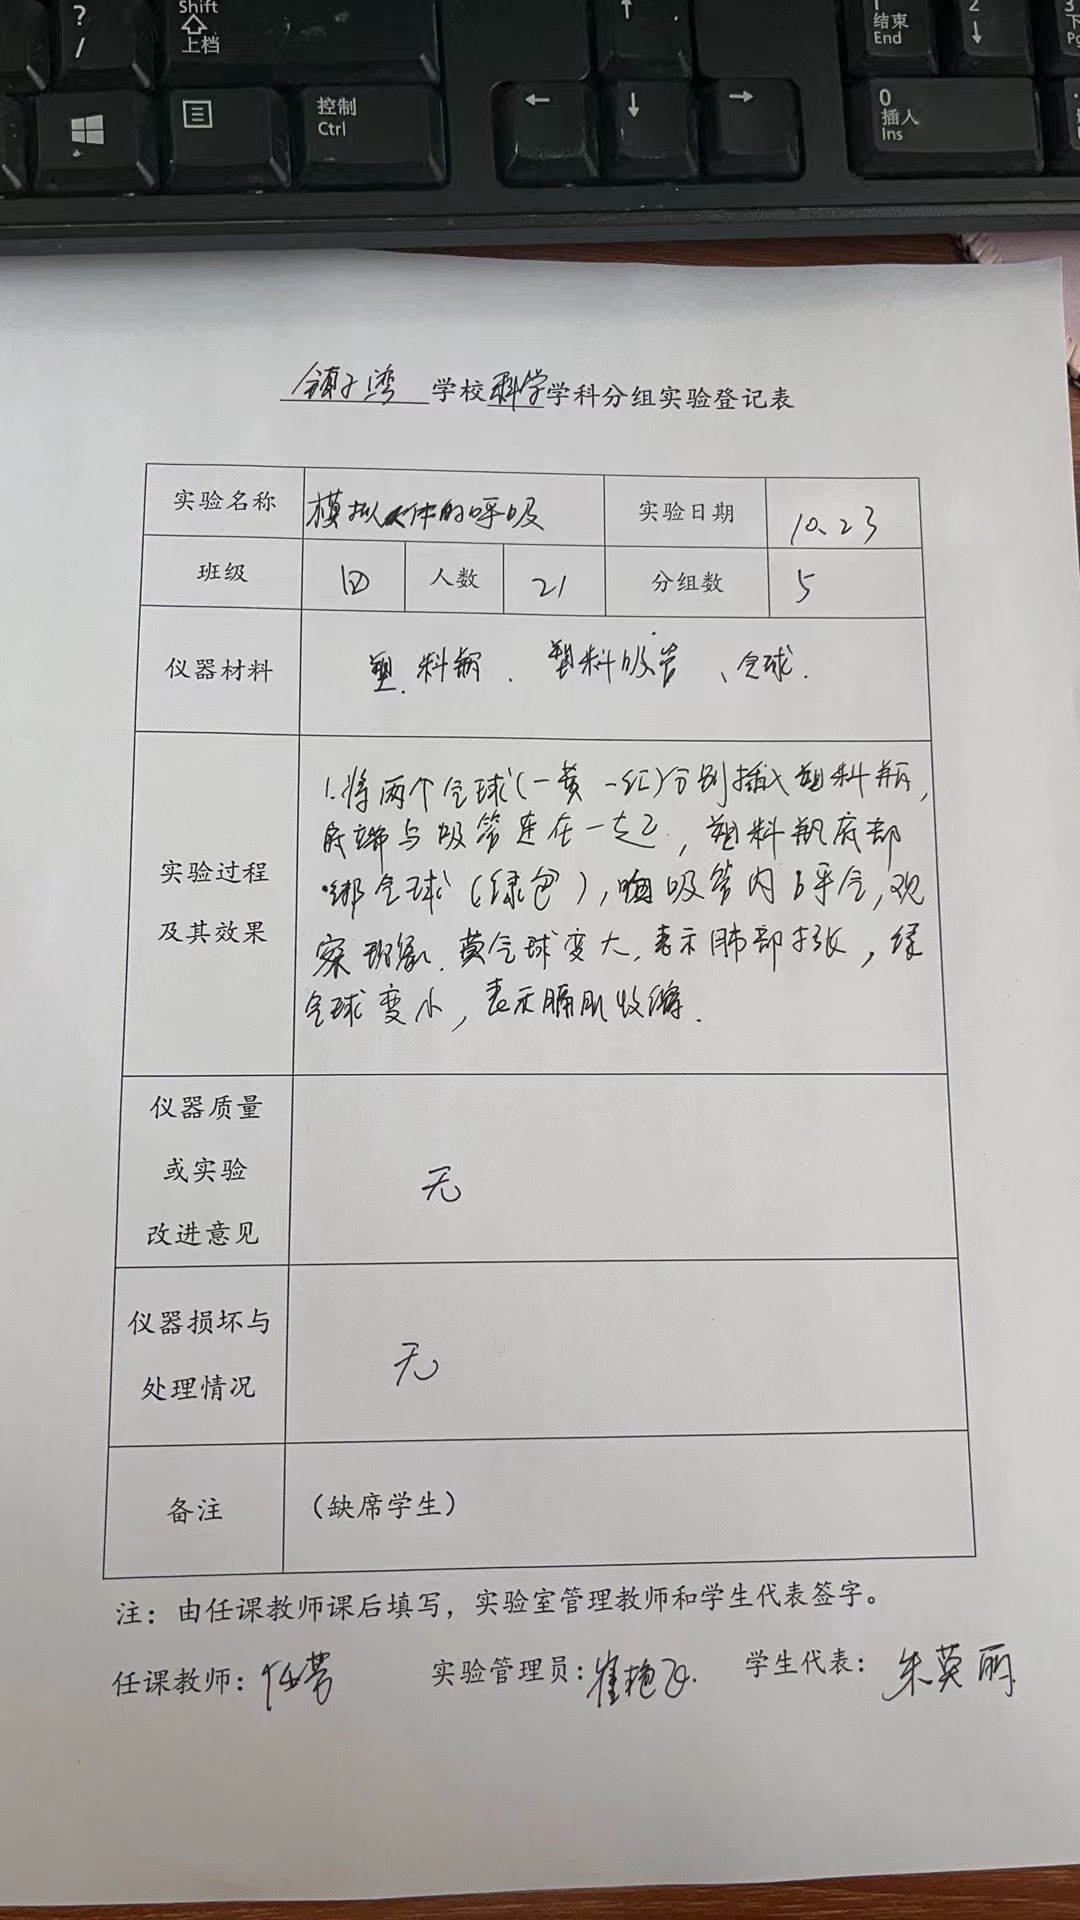 ?
/
Shift
上档
↑
1
结束
End
2
↓
3
控制
Ctrl
←
↓
→
0
插入
Ins
镇子湾学校科学学科分组实验登记表
实验名称 模拟人体的呼吸 实验日期 10.23
班级 四 人数 21 分组数 5
仪器材料 塑料瓶、塑料吸管、气球.
实验过程
及其效果
1.将两个气球(一黄一红)分别插入塑料瓶,
底端与吸管连在一起,塑料瓶底部
绑气球(绿色),吸管内呼气,观
察现象.黄气球变大,表示肺部扩张,绿
气球变小,表示膈肌收缩.
仪器质量
或实验
改进意见
无
仪器损坏与
处理情况
无
备注 (缺席学生)
注:由任课教师课后填写,实验室管理教师和学生代表签字。
任课教师:任芳 实验管理员:崔艳 学生代表:朱英丽